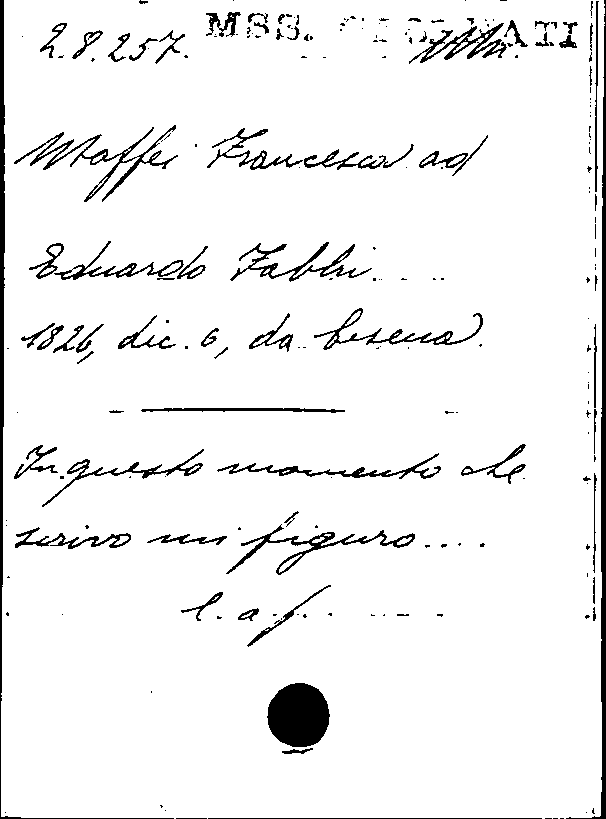 2.8.257. MSS.
Maffei Francesca ad
Eduardo Fabbri
1826, dic. 6, da Cesena.
In questo momento che
scrivo mi figuro....
l. a f.